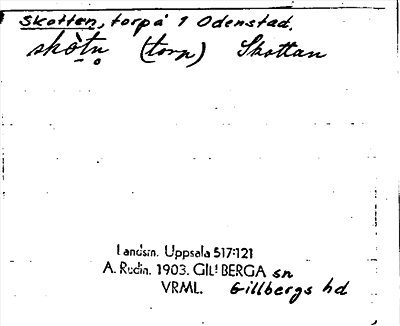 Skotten, torp å 1 Odenstad.
skò̀tn̥ (torp) Skottan
Landsm. Uppsala 517:121
A. Rudin. 1903. GILLBERGA sn
VRML. Gillbergs hd